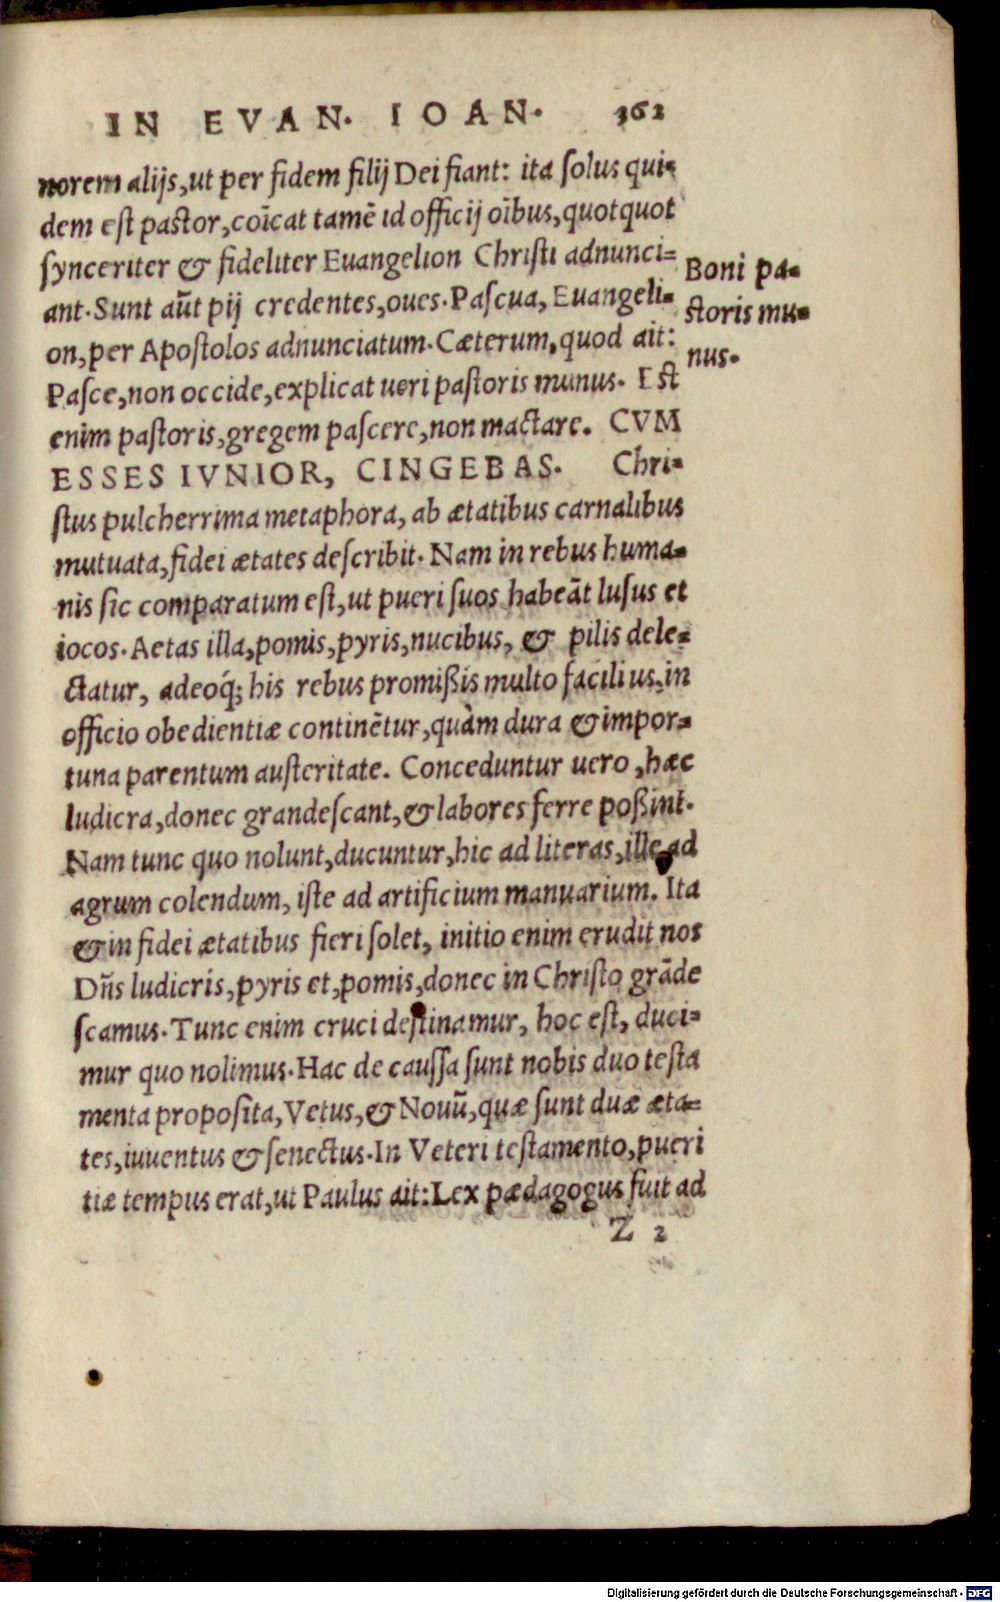 IN EVAN. IOAN. 362
norem alijs, ut per fidem filij Dei fiant: ita ſolus qui-
dem eſt paſtor, coīcat tamē id officij oībus, quotquot
ſynceriter & fideliter Euangelion Chriſti adnunci-
ant. Sunt aūt pij credentes, oues. Paſcua, Euangeli-
on, per Apoſtolos adnunciatum. Cæterum, quod ait:
Paſce, non occide, explicat ueri paſtoris munus. Eſt
enim paſtoris, gregem paſcere, non mactare. CVM
ESSES IVNIOR, CINGEBAS. Chri-
ſtus pulcherrima metaphora, ab ætatibus carnalibus
mutuata, fidei ætates deſcribit. Nam in rebus huma-
nis ſic comparatum eſt, ut pueri ſuos habeāt luſus et
iocos. Aetas illa, pomis, pyris, nucibus, & pilis dele-
ctatur, adeoq́; his rebus promißis multo facilius, in
officio obedientiæ continētur, quàm dura & impor-
tuna parentum auſteritate. Conceduntur uero, hæc
ludicra, donec grandeſcant, & labores ferre poßint.
Nam tunc quo nolunt, ducuntur, hic ad literas, ille ad
agrum colendum, iſte ad artificium manuarium. Ita
& in fidei ætatibus fieri ſolet, initio enim erudit nos
Dn̄s ludicris, pyris et, pomis, donec in Chriſto grāde
ſcamus. Tunc enim cruci deſtinamur, hoc eſt, duci-
mur quo nolimus. Hac de cauſſa ſunt nobis duo teſta
menta propoſita, Vetus, & Nouū, quæ ſunt duæ æta-
tes, iuuentus & ſenectus. In Veteri teſtamento, pueri
tiæ tempus erat, ut Paulus ait: Lex pædagogus fuit ad
Z 2
Boni pa-
ſtoris mu-
nus.
Digitalisierung gefördert durch die Deutsche Forschungsgemeinschaft - DFG